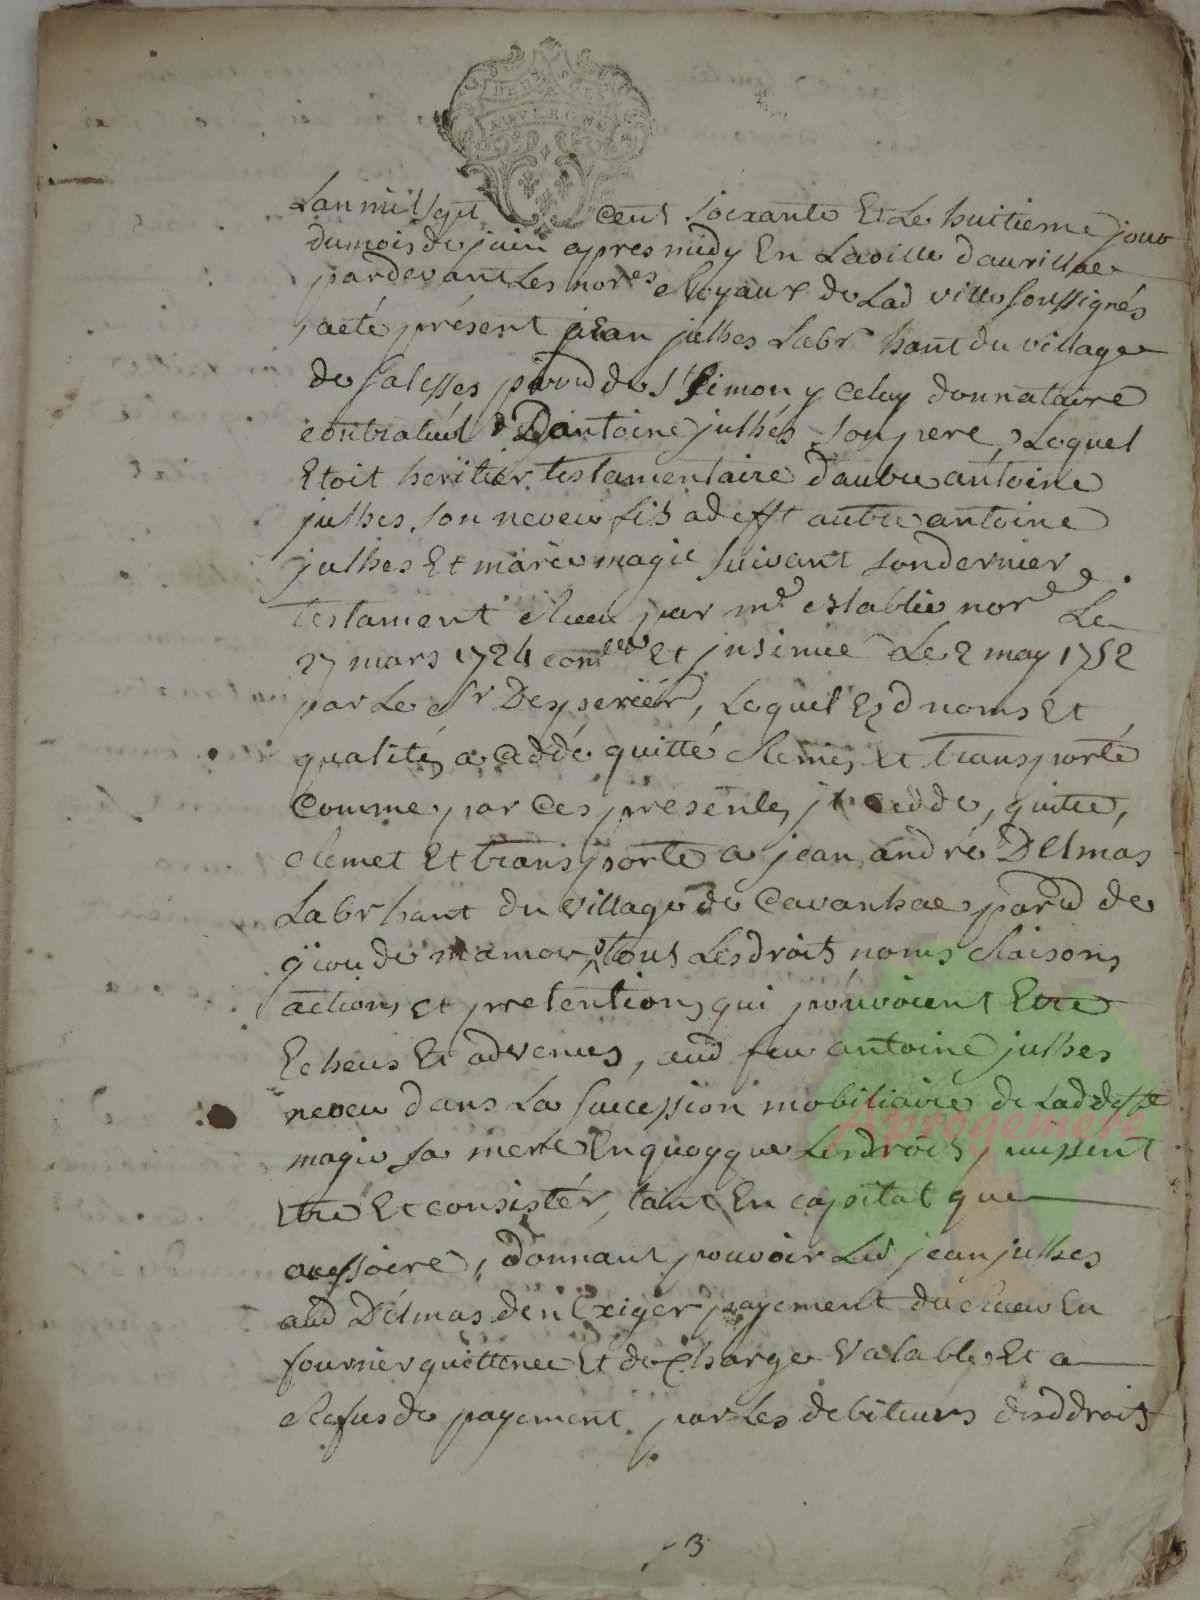 AUVERGNE
Lan mil sept cent soixante Et Le huitieme jour
du mois de juin apres midy En La ville d'aurillac
pardevant Les norês Royaux de Lad ville soussignés
a eté présent jean julhes Labr hant du village
de Salesses parr̃d de St Simon y celuy donnataire
contratuel d'antoine julhes son pere, Lequel
Etoit heritier testamentaire d'autre antoine
julhes son neveu fils a defft autre antoine
julhes Et marie magie suivant son dernier
testament Receu par me establie nore Le
27 mars 1724 conlleé Et insinué Le 2 may 1752
par Le Sr Deyserier, Lequel Ezd noms Et
qualités a cddé quitté Remis et transporté
Comme par Ces presentes jl cedde, quitte,
Remet Et transporte a jean andré Delmas
Labr hant du village de Cavanhac parr̃d de
giou de mamou tous Les droits noms Raisons
actions et pretentions qui pouvoient Etre
Echeus Et advenus, aud feu antoine julhes
neveu dans La succession mobiliaire de Lad deffte
magie sa mere En quoy que Lesdroits puissent
etre Et consister, tant En capital que
acessoire, donnant pouvoir Led jean julhes
aud Delmas den Exiger payement du Receu En
fournir quittence Et decharge valable, Et a
Refus de payement par Les debiteurs desd droits
3
Aprogemere